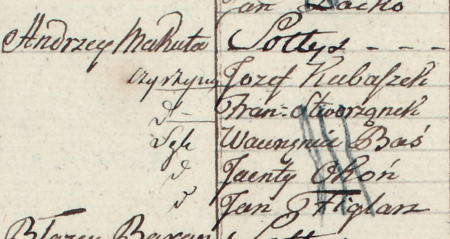 Jan Bacho
Andrzey Makuta Sołtys - - - -
Jozef Kubaszek
d– Fran: Stworzynek
Wawrzyniec Baś
d Jacenty Okoń
d Jan Figlarz
Błazey Baran Sołtys